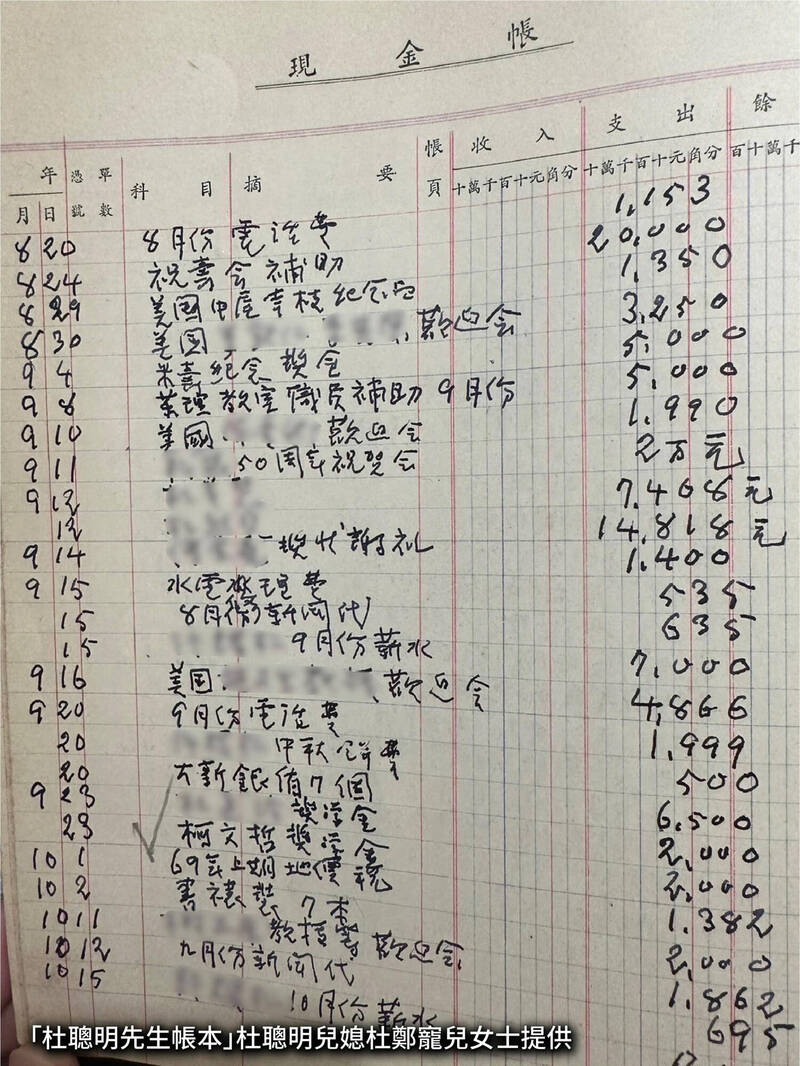 現金帳
年 憑單 科目 摘要 帳 收入 支出 餘
月 日 號數 頁 十萬千百十元角分 十萬千百十元角分 百十萬千
8 20 8月份電話費 1,153
8 24 祝壽会補助 20,000
8 29 美国中尾幸枝紀念品 1,350
8 30 美国 歡迎会 3,250
9 4 米壽紀念獎金 5,000
9 8 藥理教室職員補助 9月份 5,000
9 10 美國 歡迎会 1,990
9 11 50周年祝賀会 2万元
9 12 7,408元
12 14,818元
9 14 獎状謝礼 1,400
9 15 水電 理費 535
15 8月份新聞代 635
15 9月份薪水 7,000
9 16 美国 歡迎会 4,866
9 20 9月份電話費 1,999
20 中秋 費 500
20 大新銀 7個 6,500
9 23 獎学金 2,000
23 柯文哲獎学金 2,000
10 1 69年上期地價稅 1,382
10 2 書裱裝 7本 2,000
10 11 教授等歡迎会 1,862
10 12 九月份新聞代 695
10 15 10月份薪水
「杜聰明先生帳本」杜聰明兒媳杜鄭寵兒女士提供